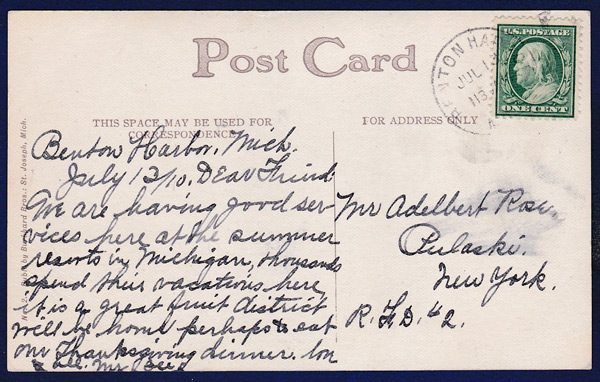 Post Card
THIS SPACE MAY BE USED FOR
CORRESPONDENCE
FOR ADDRESS ONLY
BENTON HA
JUL 1
U.S. POSTAGE
ONE CENT
Benton Harbor, Mich.
July 13/10. Dear Friend
We are having good ser-
vices here at the summer
resorts in Michigan, thousands
spend their vacations here
it is a great fruit district
will be home perhaps to eat
our Thanksgiving dinner.
& all.
Mr Adelbert Rose
Pulaski.
New York.
R.F.D. #2.
Bros.: St. Joseph, Mich.